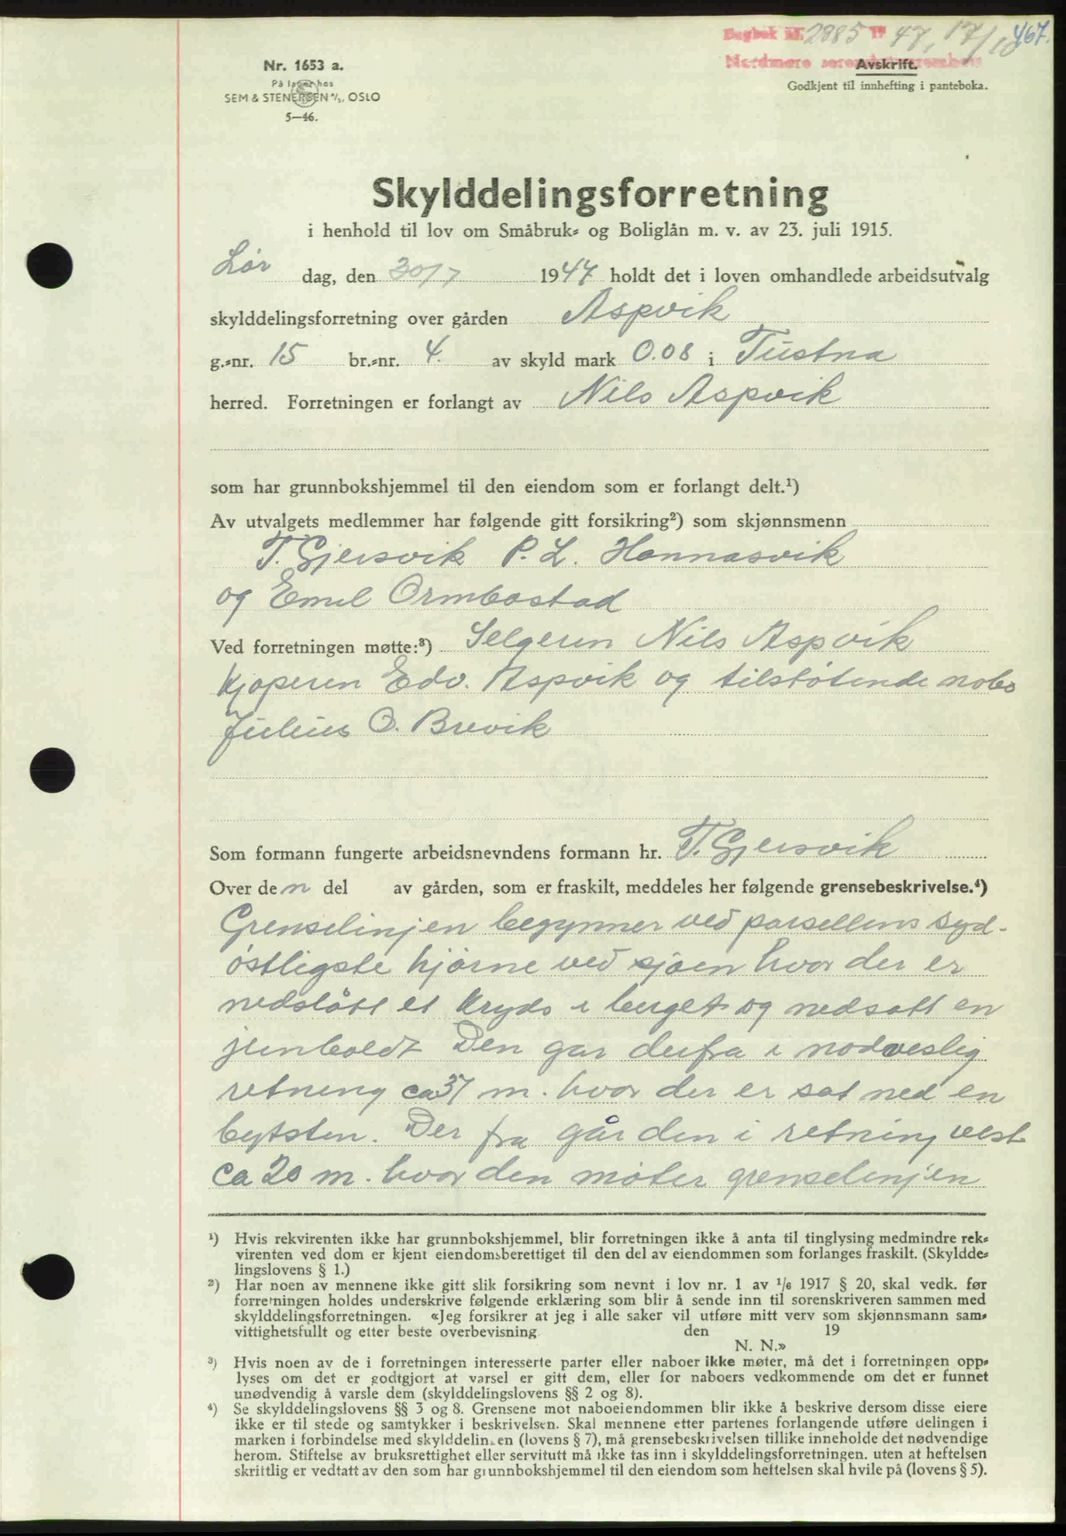 Dagbok nr. 2885 19 47, 17/10 467.
Nordmøre sorenskriverembete
Nr. 1653 a.
På lager hos
SEM & STENERSEN A/S, OSLO
5—46.
Avskrift.
Godkjent til innhefting i panteboka.
Skylddelingsforretning
i henhold til lov om Småbruk- og Boliglån m. v. av 23. juli 1915.
Lør dag, den 30/7 1947 holdt det i loven omhandlede arbeidsutvalg
skylddelingsforretning over gården Aspvik
g.-nr. 15 br.-nr. 4. av skyld mark 0.08 i Tustna
herred. Forretningen er forlangt av Nils Aspvik
som har grunnbokshjemmel til den eiendom som er forlangt delt.¹)
Av utvalgets medlemmer har følgende gitt forsikring²) som skjønnsmenn
T. Gjersvik P. L. Hannasvik
og Emil Ormbostad
Ved forretningen møtte:³) Selgeren Nils Aspvik
Kjøperen Edv. Aspvik og tilstøtende nabo
Julius O. Brevik
Som formann fungerte arbeidsnevndens formann hr. T. Gjersvik
Over den del av gården, som er fraskilt, meddeles her følgende grensebeskrivelse.⁴)
Grenselinjen begynner ved parsellens syd-
østligste hjørne ved sjøen hvor der er
nedslått et kryds i berget og nedsatt en
jernboldt Den går derfra i nodveslig
retning ca 37 m. hvor der er sat ned en
bytsten. Der fra går den i retning vest
ca 20 m. hvor den møter grenselinjen
¹) Hvis rekvirenten ikke har grunnbokshjemmel, blir forretningen ikke å anta til tinglysing medmindre rek-
virenten ved dom er kjent eiendomsberettiget til den del av eiendommen som forlanges fraskilt. (Skyldde-
lingslovens § 1.)
²) Har noen av mennene ikke gitt slik forsikring som nevnt i lov nr. 1 av 1/6 1917 § 20, skal vedk. før
forretningen holdes underskrive følgende erklæring som blir å sende inn til sorenskriveren sammen med
skylddelingsforretningen. «Jeg forsikrer at jeg i alle saker vil utføre mitt verv som skjønnsmann sam-
vittighetsfullt og etter beste overbevisning den 19
N. N.»
³) Hvis noen av de i forretningen interesserte parter eller naboer ikke møter, må det i forretningen opp-
lyses om det er godtgjort at varsel er gitt dem, eller for naboers vedkommende om det er funnet
unødvendig å varsle dem (skylddelingslovens §§ 2 og 8).
⁴) Se skylddelingslovens §§ 3 og 8. Grensene mot naboeiendommen blir ikke å beskrive dersom disse eiere
ikke er til stede og samtykker i beskrivelsen. Skal mennene etter partenes forlangende utføre delingen i
marken i forbindelse med skylddelingen (lovens § 7), må grensebeskrivelsen tillike inneholde det nødvendige
herom. Stiftelse av bruksrettighet eller servitutt må ikke tas inn i skylddelingsforretningen. uten at heftelsen
skriftlig er vedtatt av den som har grunnbokshjemmel til den eiendom som heftelsen skal hvile på (lovens § 5).